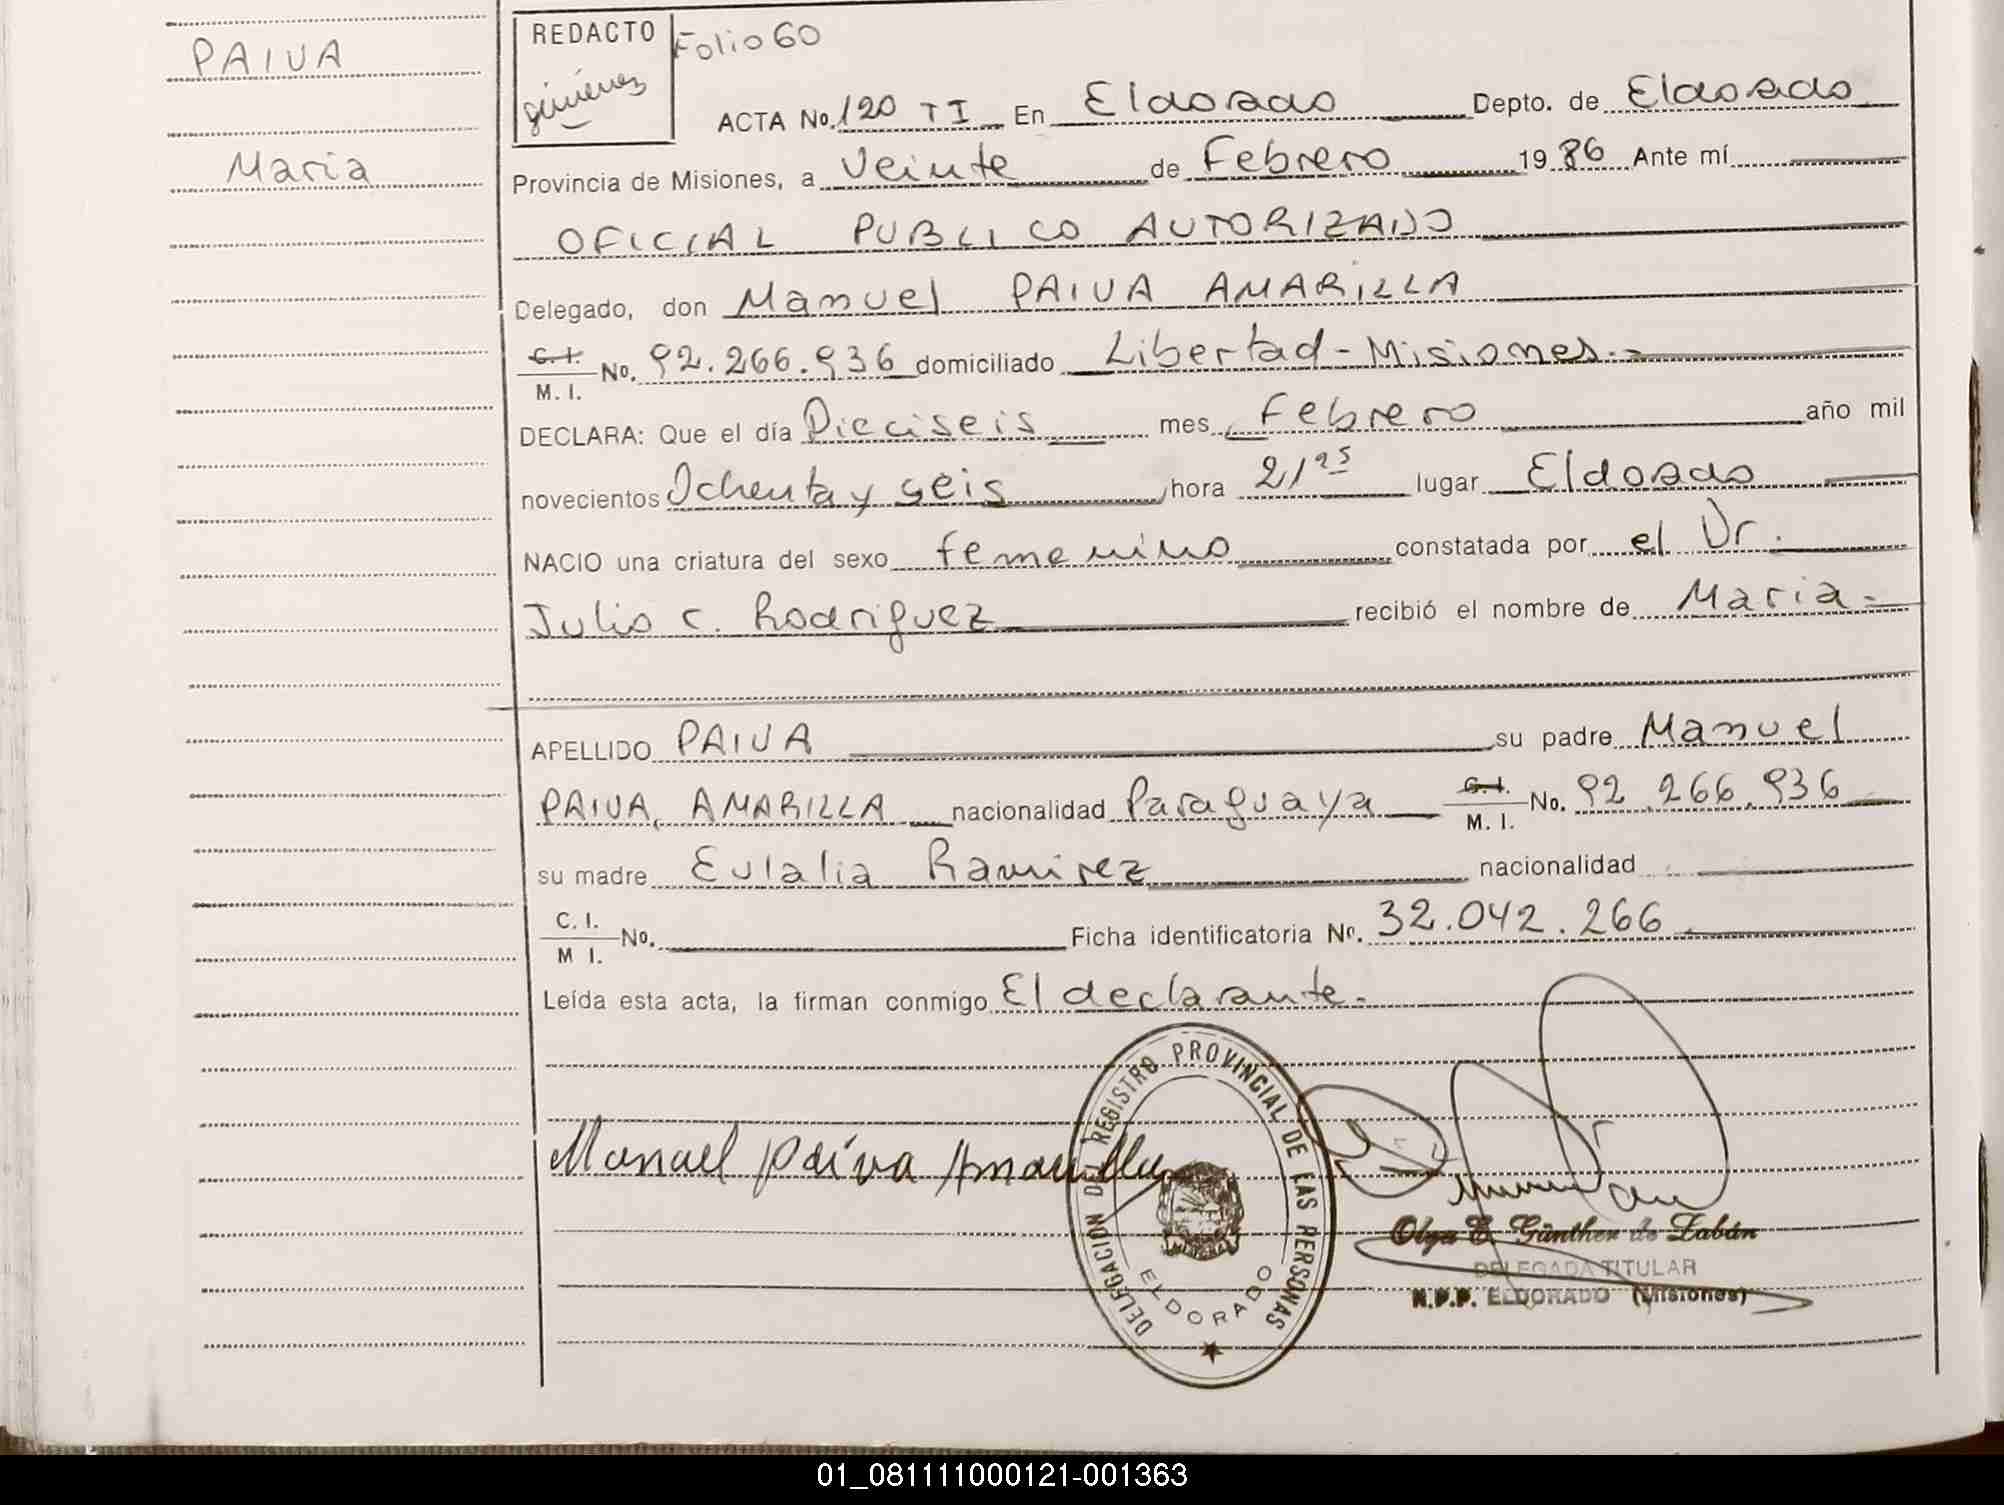 PAIVA
Maria
REDACTO
gimenez
Folio 60
ACTA No. 120 TI En Eldorado Depto. de Eldorado
Provincia de Misiones, a Veinte de Febrero 19 86 Ante mí
OFICIAL PUBLICO AUTORIZADO
Delegado, don Manuel PAIVA AMARILLA
C. I. / M. I. No. 92.266.936 domiciliado Libertad - Misiones.-
DECLARA: Que el día Dieciseis mes Febrero año mil
novecientos Ochenta y seis hora 21 25 lugar Eldorado
NACIO una criatura del sexo femenino constatada por el Dr.
Julio C. Rodriguez recibió el nombre de Maria.-
APELLIDO PAIVA su padre Manuel
PAIVA AMARILLA nacionalidad Paraguaya C. I. / M. I. No. 92.266.936
su madre Eulalia Ramirez nacionalidad
C. I. / M I. No. Ficha identificatoria No. 32.042.266.
Leída esta acta, la firman conmigo El declarante.-
Manuel Paiva Amarilla
DELEGACION DEL REGISTRO PROVINCIAL DE LAS PERSONAS
ELDORADO
Olga E. Günther de Zabán
DELEGADA TITULAR
R.P.P. ELDORADO (Misiones)
01_081111000121-001363